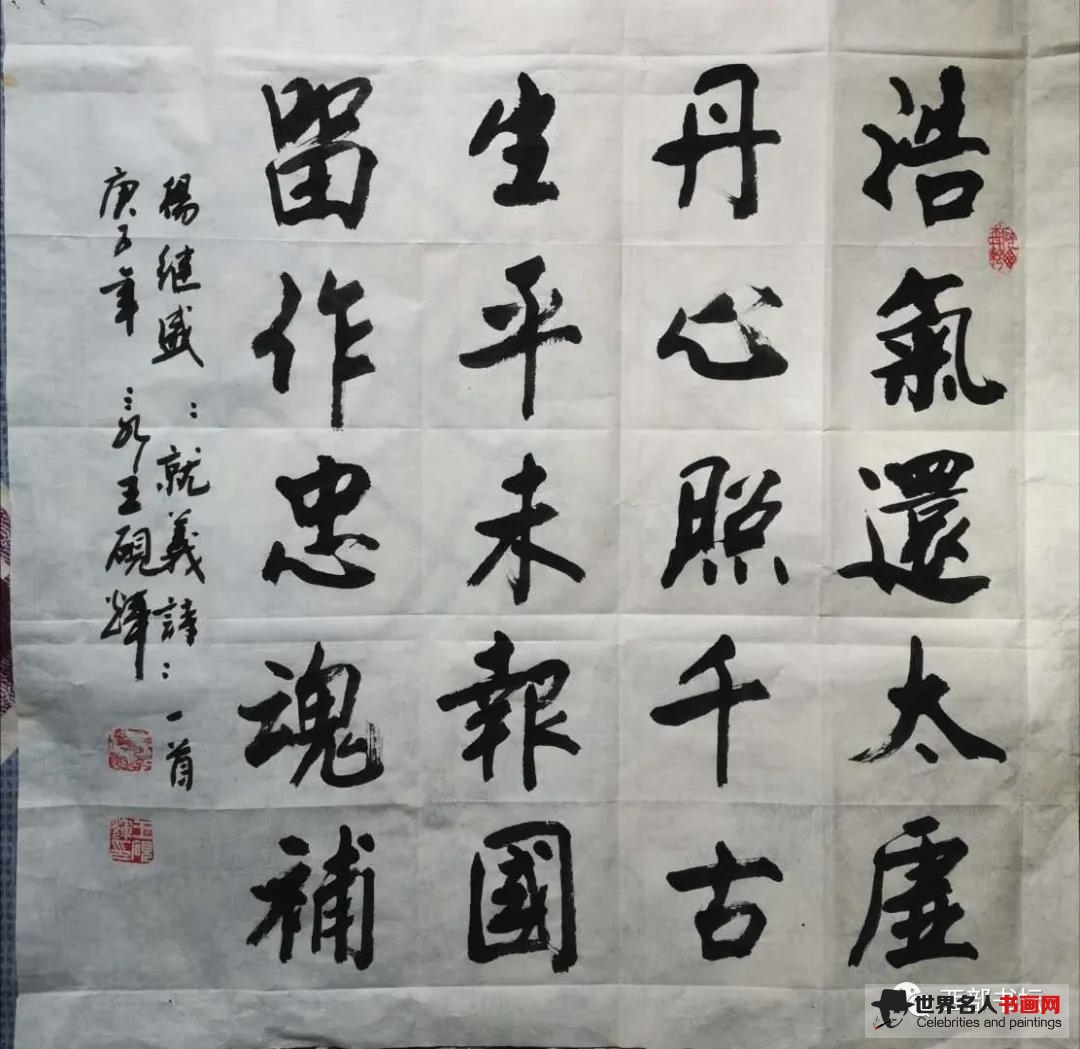 浩氣還太虛
丹心照千古
生平未報國
留作忠魂補
楊继盛：就義詩：一首
庚子年 王硯輝
世界名人书画网
Celebrities and paintings